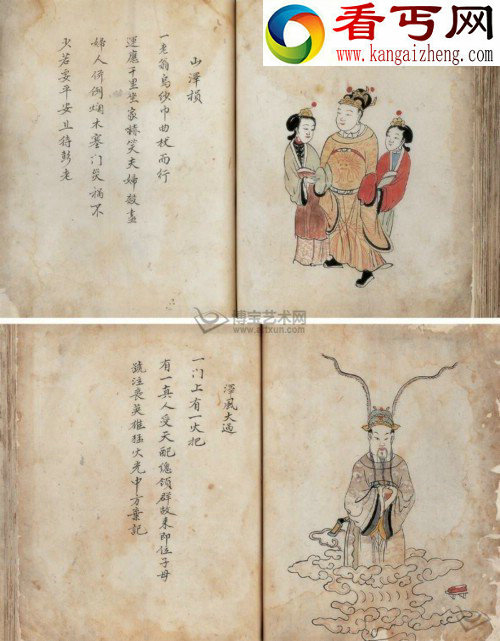 看丐网
www.kangaizheng.com
山澤損
一老翁烏紗巾曲杖而行
運應千里坐家轎笑夫婦敬盡
婦人併倒烟木塞門災禍不
少若要平安且待彭老
博宝艺术网
www.artxun.com
澤風大過
一门上有一火把
有一真人受天配總領群故来即位子母
號注喪英雄猛火光中方棄記